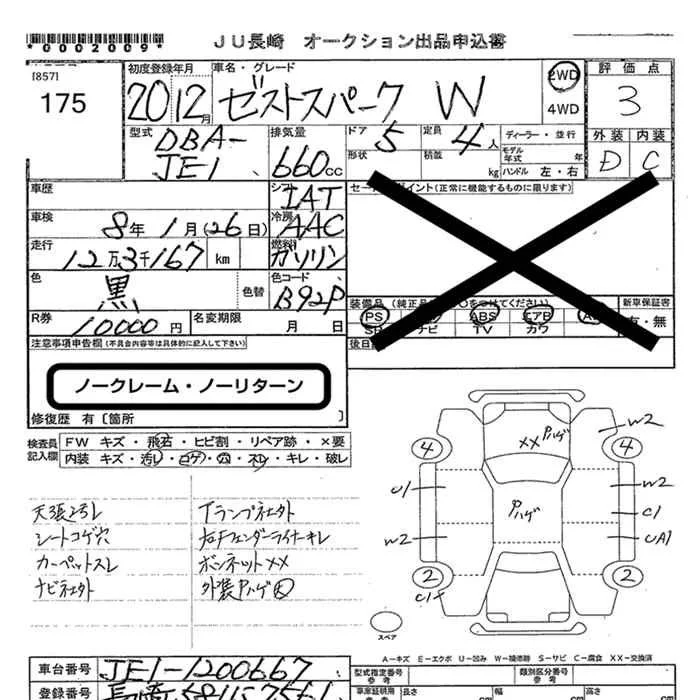 *0002009*
JU長崎 オークション出品申込書
[857]
175
初度登録年月
2012月
車名・グレード
ゼストスパーク W
2WD
4WD
評価点
3
型式
DBA-
JE1
排気量
660cc
ドア
5
定員
4人
形状
積載
kg
ディーラー・並行
モデル
年式 年
ハンドル 左・右
外装
内装
D
C
車歴
シフト
IAT
車検
8年1月(26日)
冷房
AAC
走行
12万3千167
km
燃料
ガソリン
色
黒
色替
色コード
B92P
R券
10000円
名変期限
月 日
ポイント(正常に機能するものに限ります)
装備品
(純正品
○をつけてください)
新車保証書
PS
ABS
エアB
有・無
ナビ
TV
カワ
後日
注意事項申告欄(不具合内容等は具体的に記入して下さい)
ノークレーム・ノーリターン
修復歴 有〔箇所 〕
検査員
記入欄
FW キズ・飛石・ヒビ割・リペア跡・×要
内装 キズ・汚レ・コゲ・穴・スレ・キレ・破レ
シートコゲ穴
カーペットスレ
ボンネットXX
外装Pハゲ大
XX Pハゲ
Pハゲ
W2
4
4
U1
W2
C1
W2
UA1
2
2
C1
スペア
A-キズ E-エクボ U-凹み W-補修跡 S-サビ C-腐食 XX-交換済
車台番号
JE1-1200667
登録番号
型式指定番号
参考
類別区分番号
参考
長さ
cm
幅
cm